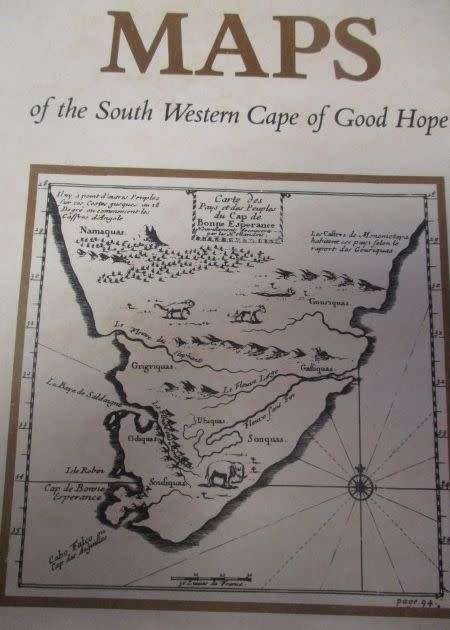 MAPS
of the South Western Cape of Good Hope
Carte des
Pays et des Peuples
du Cap de
Bonne Esperance
Il n'y a point d'autres Peuples
sur ces Costes jusques au 18
Degre ou commencent les
Caffres d'Angole
Les Caffres de Monomotapa
habitent ces pays selon le
raport des Gouriquas
Namaquas
Gouriquas
Le Fleuve des
Grigriquas
Gassiquas
Le Fleuve Large
La Baye de Saldaigne
Ubiquas
Fleuve sans Eau
Odiquas
Sonquas
Isle Robin
Cap de Bonne
Esperance
Souliquas
Cabo Falco ou
Cap des Aiguilles
Lieues de France
page 94